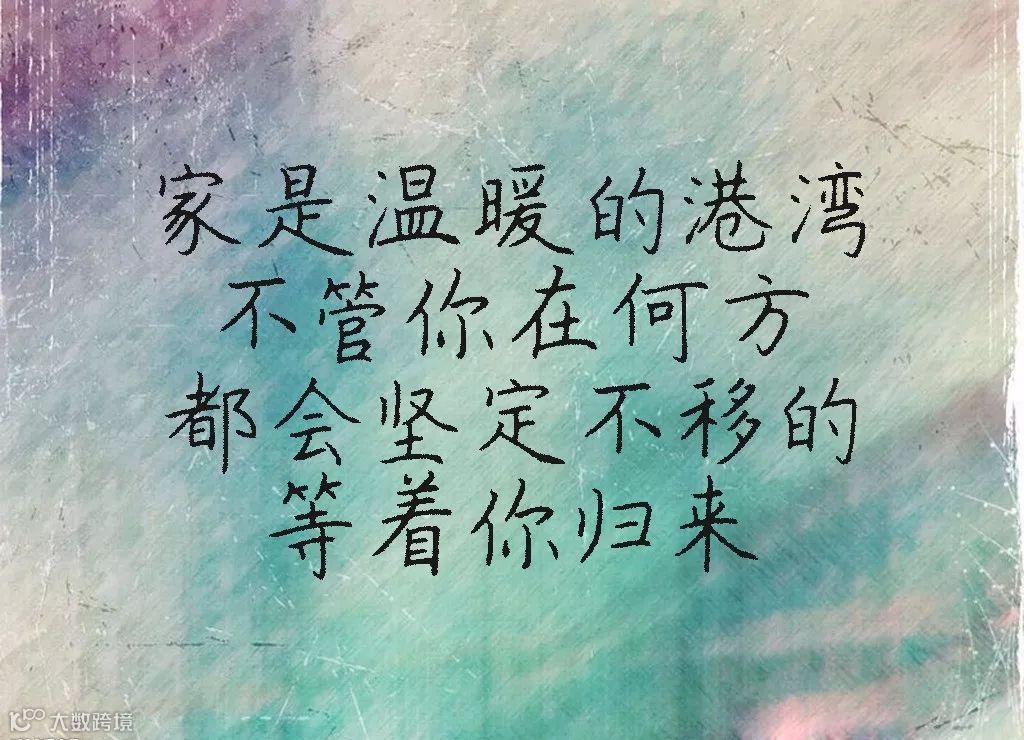 家是温暖的港湾
不管你在何方
都会坚定不移的
等着你归来
大数跨境